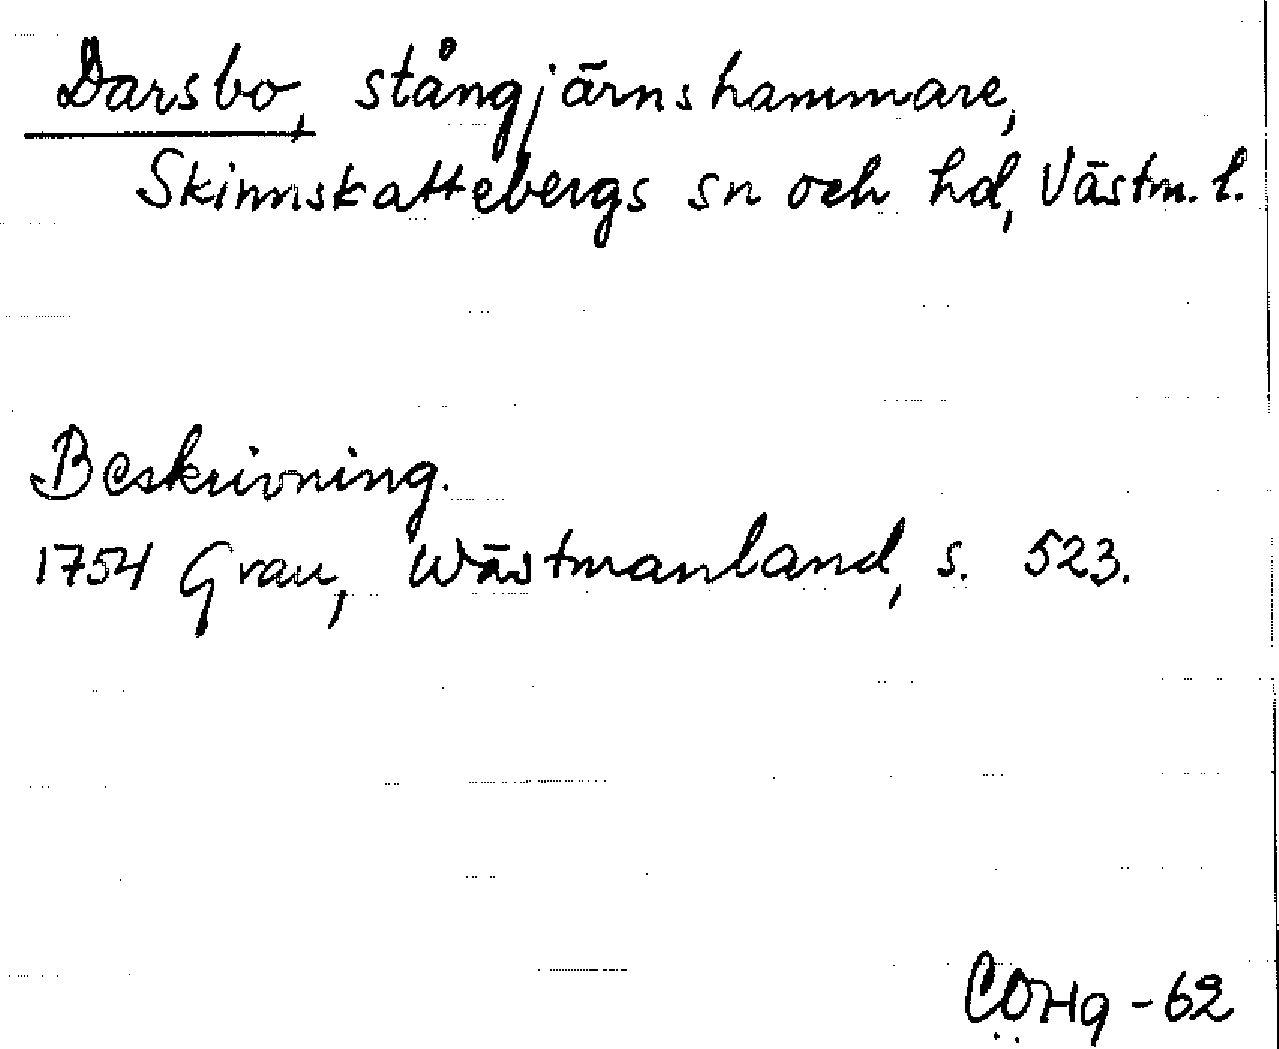 Darsbo, stångjärnshammare,
Skinnskattebergs sn och hd, Västm. l.
Beskrivning.
1754 Grau, Wästmanland, s. 523.
COHg - 62